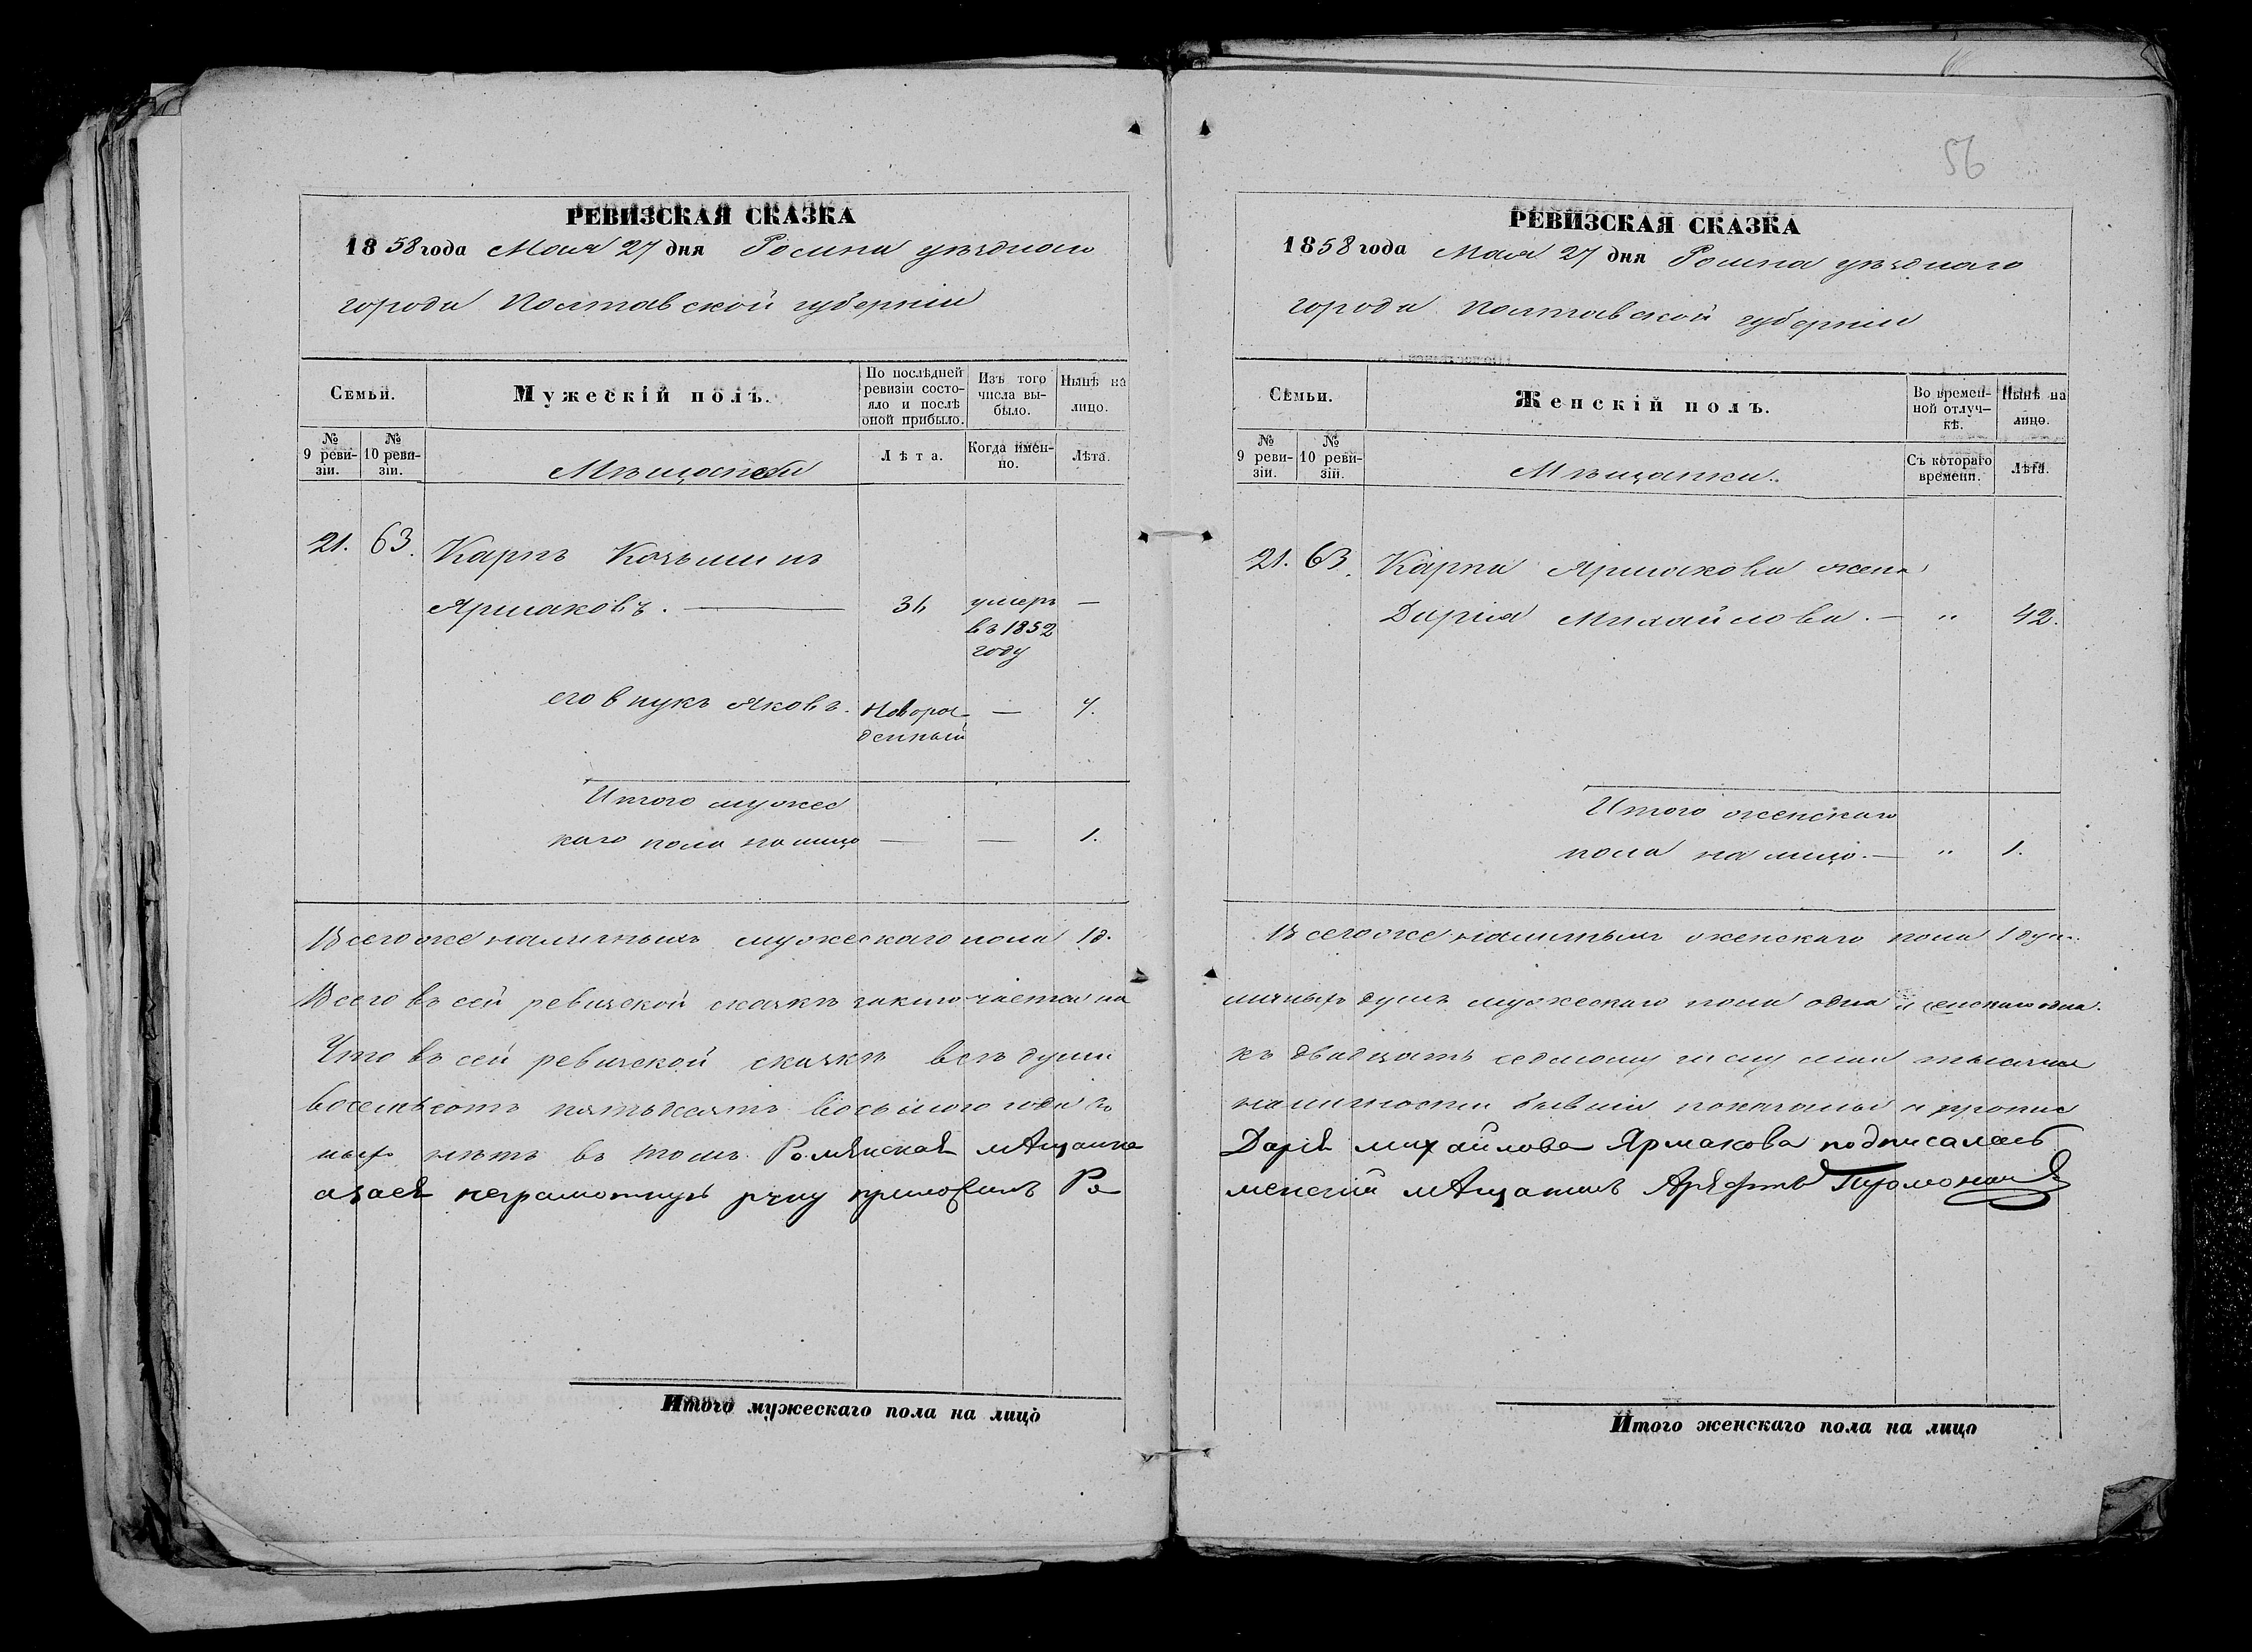 56
РЕВИЗСКАЯ СКАЗКА
1858 года Мая 27 дня Ромна уѣзднаго
города Полтавской губерніи
Семьи.
Мужескій полъ.
По послѣдней
ревизіи состо-
яло и послѣ
оной прибыло.
Изъ того
числа вы-
было.
Нынѣ на
лицо.
№
9 реви-
зіи.
№
10 реви-
зіи.
Мѣщанъ
Лѣта.
Когда имен-
но.
Лѣта.
21. 63. Карпъ Козьминъ
Ярмаковъ. — 31 умеръ —
въ 1852
году
его внукъ Яковъ. Новорож — 7.
денный
Итого мужес
каго пола на лицо — — 1.
Всего же наличныхъ мужескаго пола 1 д.
Всего въ сей ревизской сказкѣ заключается на
Что въ сей ревизской сказкѣ всѣ души
восемьсотъ пятьдесятъ восьмого года въ
ныхъ нѣтъ въ томъ Роменская мѣщанка
а за ея неграмотную руку приложилъ Ро
РЕВИЗСКАЯ СКАЗКА
1858 года Мая 27 дня Ромна уѣзднаго
города Полтавской губерніи
Семьи.
Женскій полъ.
Во времен-
ной отлуч-
кѣ.
Нынѣ на
лицо.
№
9 реви-
зіи.
№
10 реви-
зіи.
Мѣщанки.
Съ котораго
времени.
Лѣта.
21. 63. Карпа Ярмакова жена
Дарія Михайлова. — " 42.
Итого женскаго
пола на лицо. — " 1.
Всего же наличныхъ женскаго пола 1 душ.
личныхъ душъ мужескаго пола одна и женскаго одна.
къ двадцать седьмому числу мая тысяча
наличности бывшія показаны и пропис
Дарія Михайлова Ярмакова подписалась
менскій мѣщанинъ
Итого мужескаго пола на лицо
Итого женскаго пола на лицо